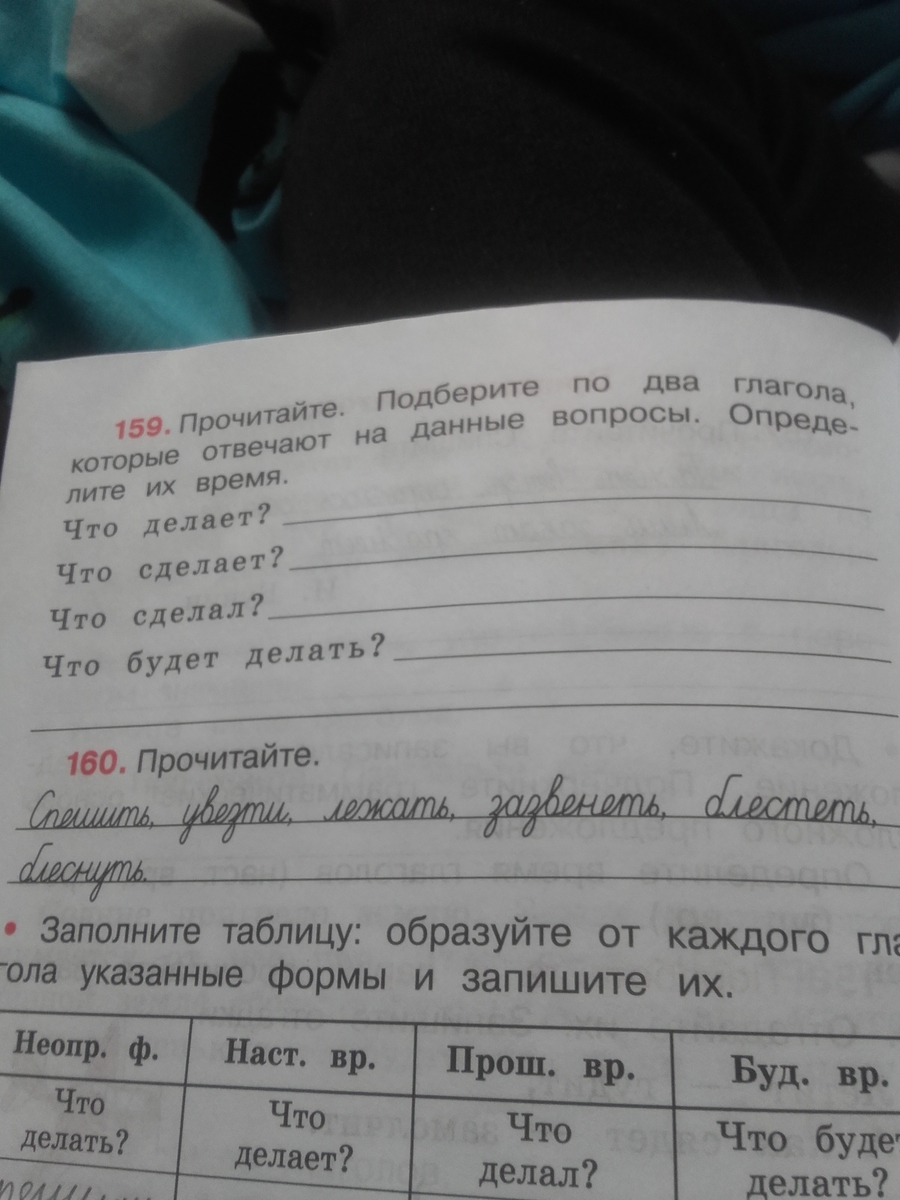 159. Прочитайте. Подберите по два глагола,
которые отвечают на данные вопросы. Опреде-
лите их время.
Что делает?
Что сделает?
Что сделал?
Что будет делать?
160. Прочитайте.
Спешить, увезти, лежать, зазвенеть, блестеть,
блеснуть.
• Заполните таблицу: образуйте от каждого гла
гола указанные формы и запишите их.
Неопр. ф. Наст. вр. Прош. вр. Буд. вр.
Что Что Что Что буде
делать? делает? делал? делать?